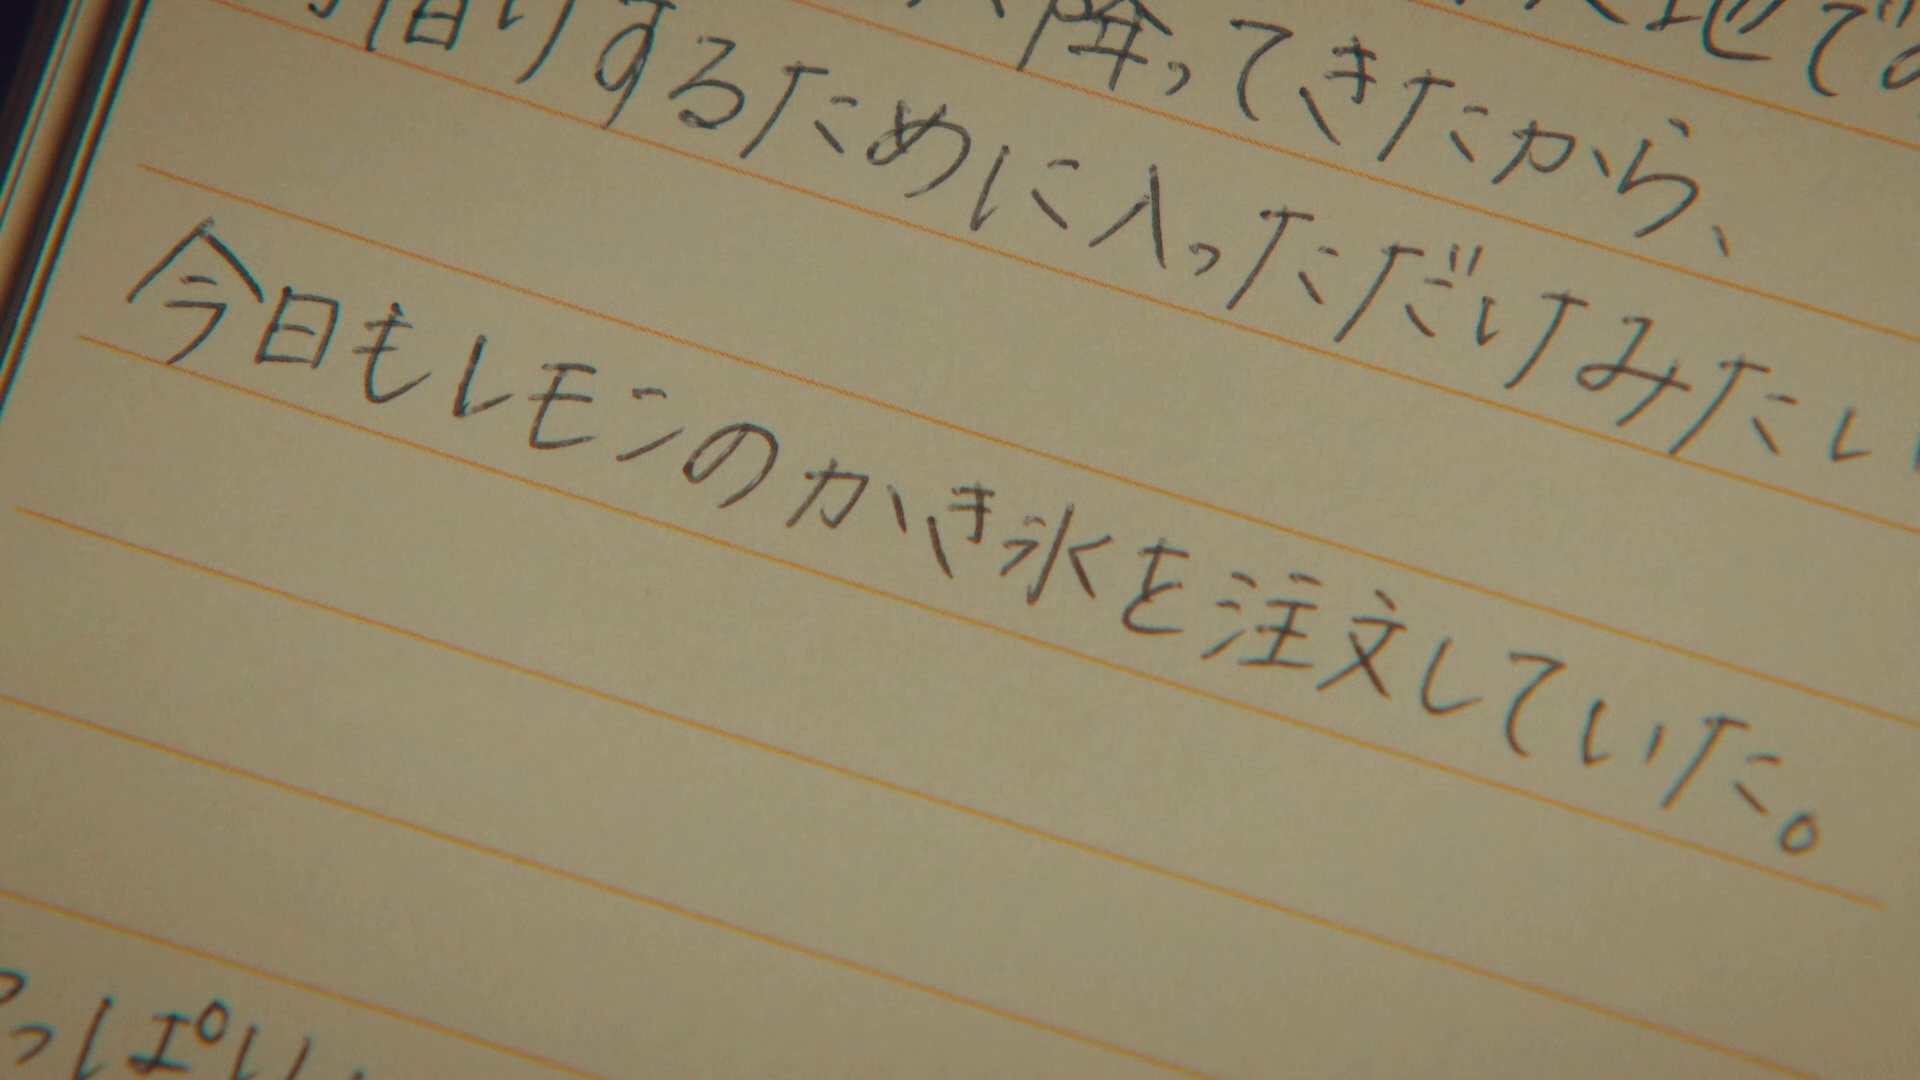 降ってきたから、
借りするために入っただけみたい
今日もレモンのかき氷を注文していた。
っぱり